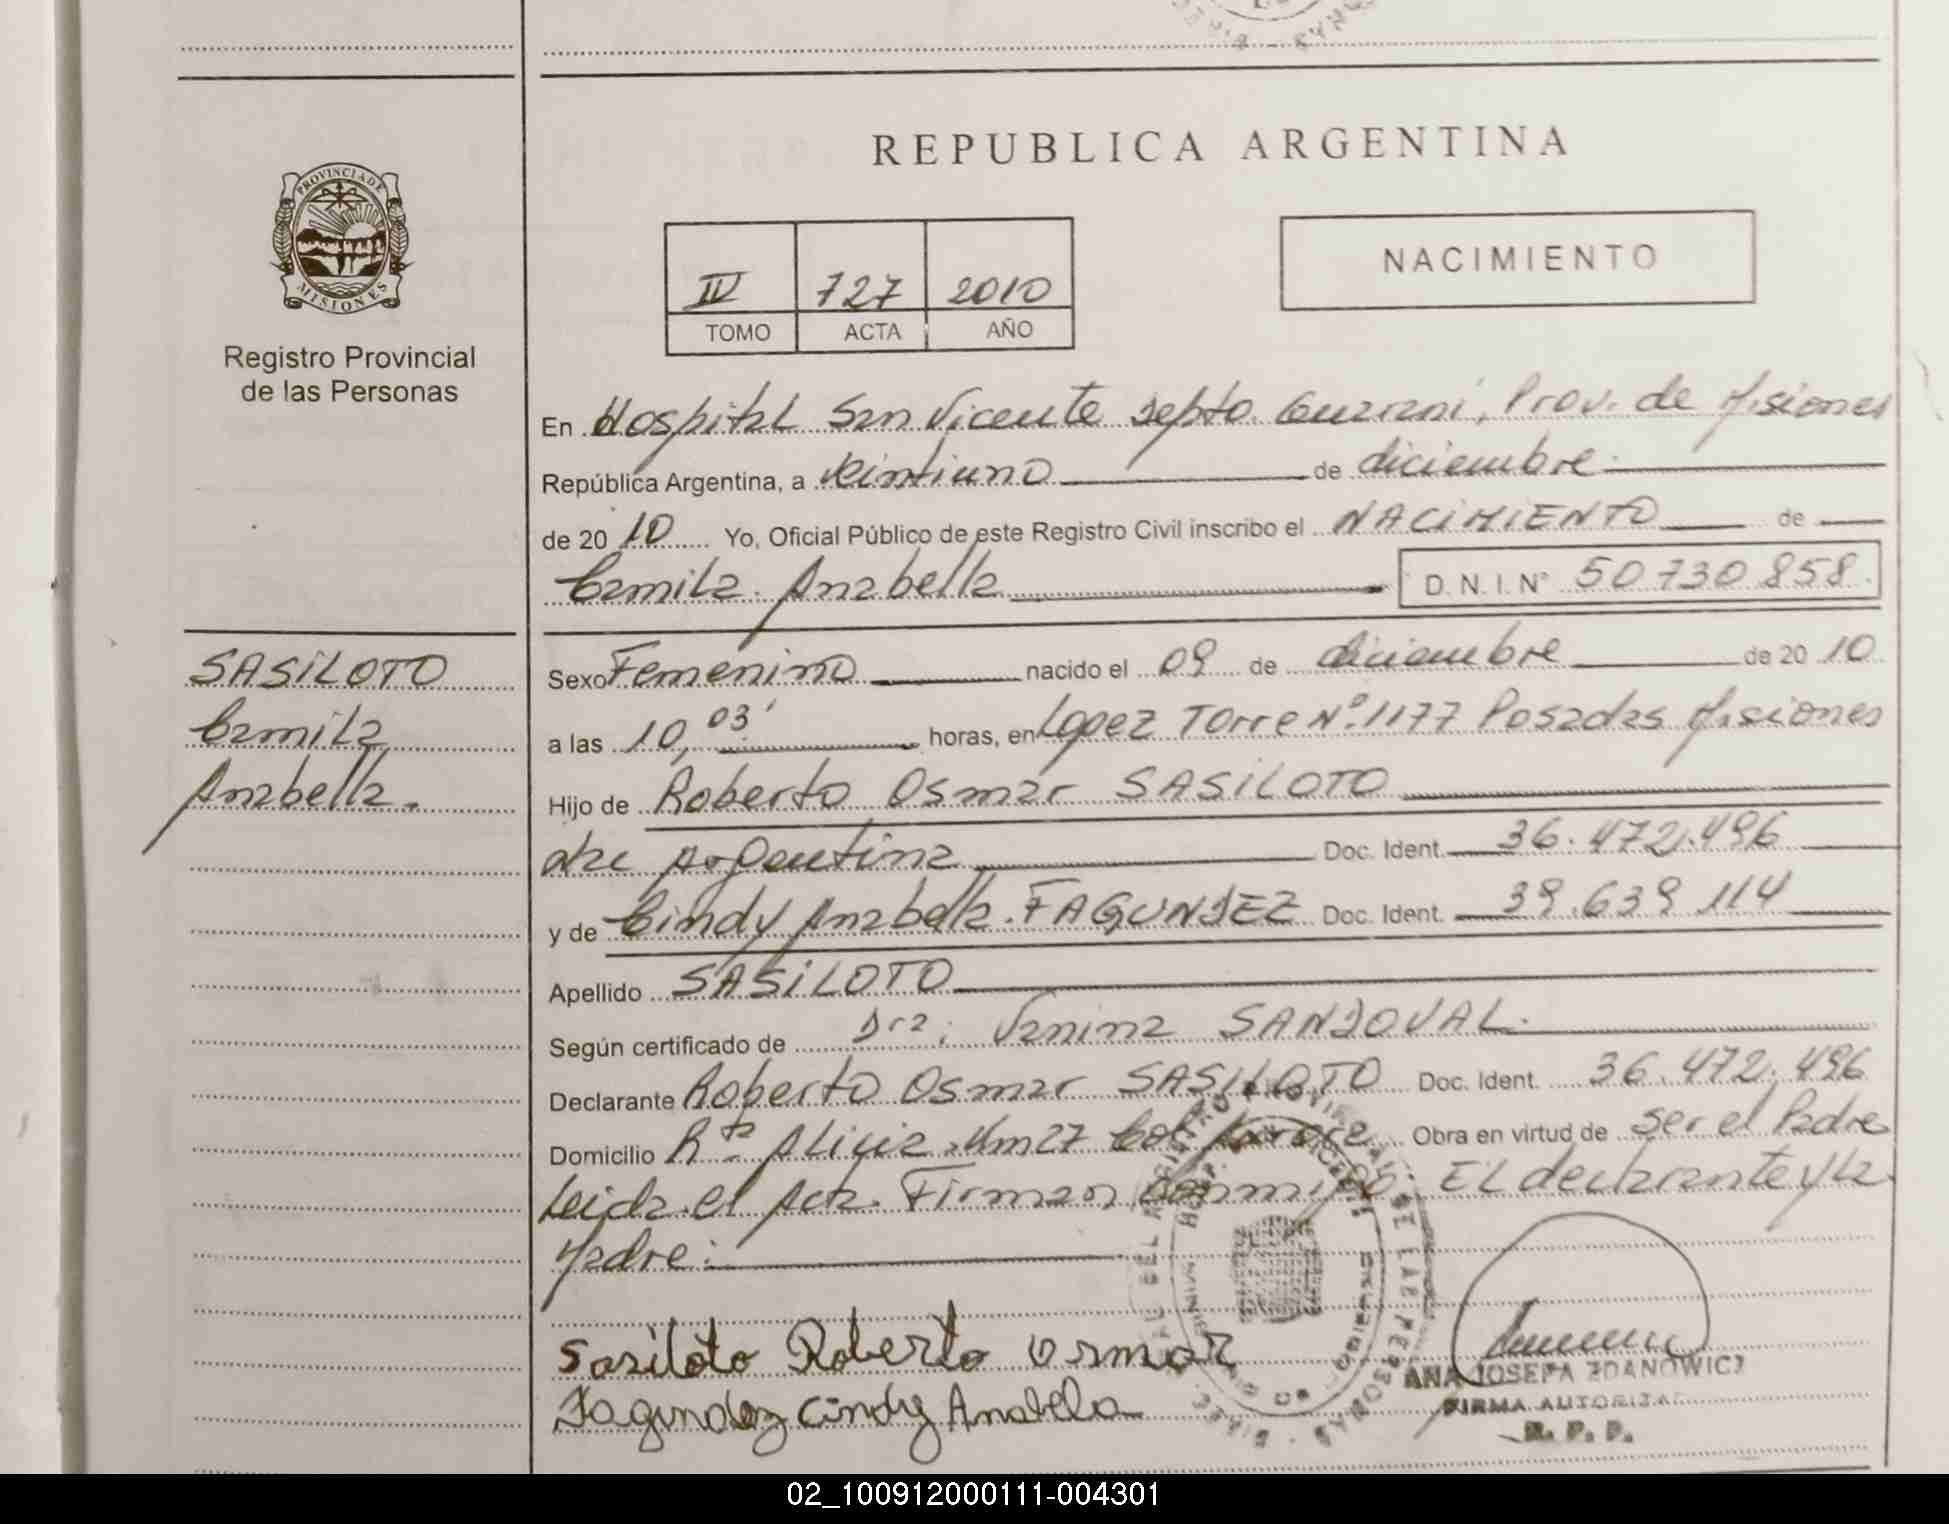 REPUBLICA ARGENTINA
PROVINCIA DE
MISIONES
Registro Provincial
de las Personas
IV 727 2010
TOMO ACTA AÑO
NACIMIENTO
En Hospital San Vicente Depto. Guaraní, Prov. de Misiones
República Argentina, a Veintiuno de diciembre
de 20 10 Yo, Oficial Público de este Registro Civil inscribo el NACIMIENTO de
Camila Anabella D.N.I.N° 50730858
SASILOTO
Camila
Anabella.
Sexo Femenino nacido el 09 de diciembre de 20 10
a las 10,03' horas, en Lopez Torre Nº 1177 Posadas Misiones
Hijo de Roberto Osmar SASILOTO
Argentina Doc. Ident. 36.472.496
y de Cindy Anabella FAGUNDEZ Doc. Ident. 39.639.114
Apellido SASILOTO
Según certificado de Dra: Vanina SANDOVAL.
Declarante Roberto Osmar SASILOTO Doc. Ident. 36.472.496
Domicilio Rta Alicia Km27 Col Obra en virtud de ser el Padre
Leida el Acta. Firman conmigo: El declarante y la
Madre:
Sasiloto Roberto Osmar
Fagundez Cindy Anabela
ANA JOSEFA ZDANOWICZ
FIRMA AUTORIZADA
R. P. P.
02_100912000111-004301